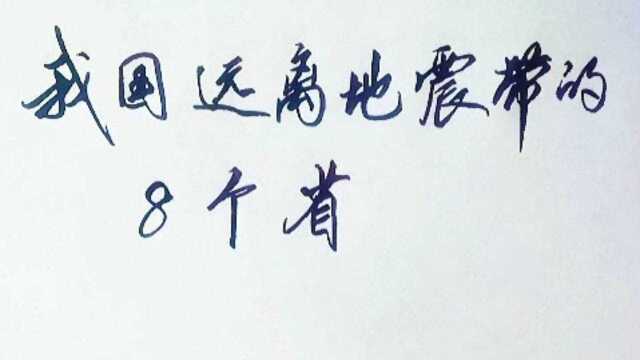 我国远离地震带的
8个省